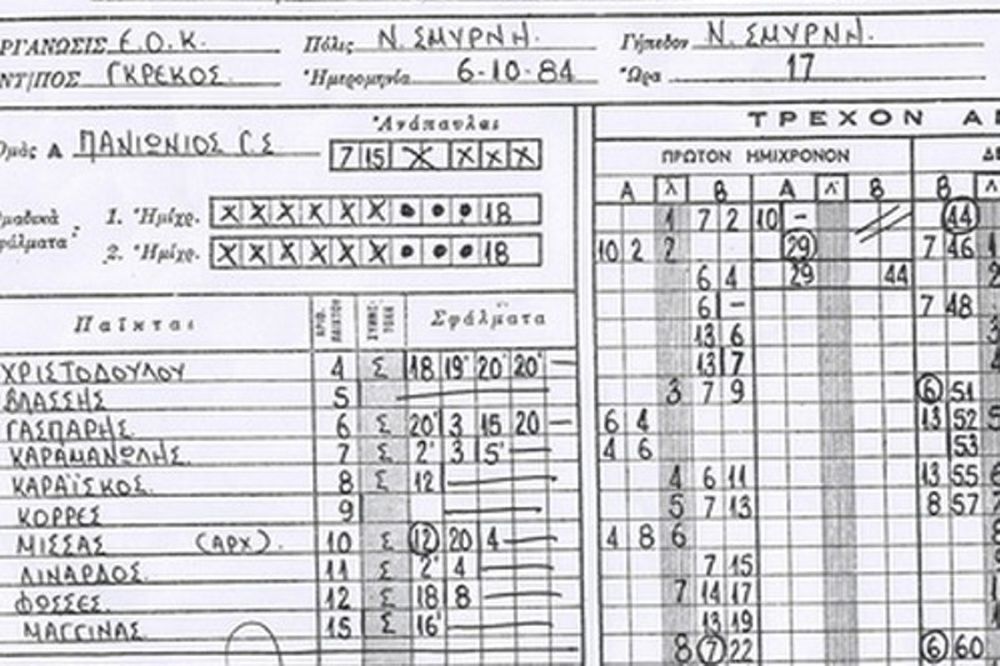 ΡΓΑΝΩΣΙΣ Ε.Ο.Κ. Πόλις Ν. ΣΜΥΡΝΗ. Γήπεδον Ν. ΣΜΥΡΝΗ.
ΝΤ/ΠΟΣ ΓΚΡΕΚΟΣ. Ἡμερομηνία 6-10-84 Ὥρα 17
Ἀνάπαυλαι ΤΡΕΧΟΝ
Α ΠΑΝΙΩΝΙΟΣ Γ.Σ 7 15 X X X X ΠΡΩΤΟΝ ΗΜΙΧΡΟΝΟΝ
Α λ Β Α λ Β Β
1. Ἡμίχρ. X X X X X X • • • 18 1 7 2 10 - 44
2. Ἡμίχρ. X X X X X X • • • 18 10 2 2 29 7 46
6 4 29 44
Παῖκται Σφάλματα 6 - 7 48
13 6
ΧΡΙΣΤΟΔΟΥΛΟΥ 4 Σ 18 19' 20' 20' 13 7
ΒΛΑΣΣΗΣ 5 3 7 9 6 51
ΓΑΣΠΑΡΗΣ 6 Σ 20' 3 15 20 6 4 13 52
ΚΑΡΑΜΑΝΩΛΗΣ. 7 Σ 2' 3 5' 4 6 53
ΚΑΡΑΪΣΚΟΣ. 8 Σ 12 4 6 11 13 55
ΚΟΡΡΕΣ 9 5 7 13 8 57
ΜΙΣΣΑΣ (ΑΡΧ). 10 Σ 12 20 4 4 8 6
ΛΙΝΑΡΔΟΣ. 11 Σ 2' 4 7 15
ΦΩΣΣΕΣ. 12 Σ 18 8 7 14 17
ΜΑΓΓΙΝΑΣ. 15 Σ 16' 13 19
8 7 22 6 60